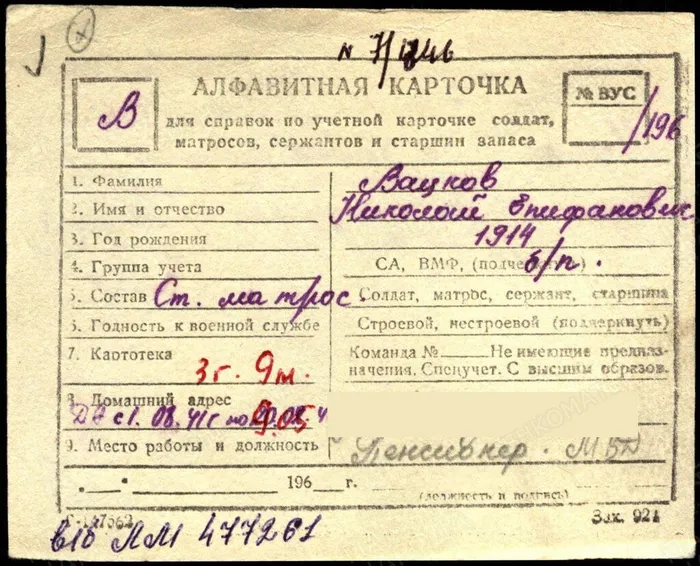 N 7/1846
В
АЛФАВИТНАЯ КАРТОЧКА
для справок по учетной карточке солдат,
матросов, сержантов и старшин запаса
№ ВУС
/196
1. Фамилия Вацков
2. Имя и отчество Николай Епифанович
3. Год рождения 1914
4. Группа учета СА, ВМФ, (подче б/п.
5. Состав Ст. матрос Солдат, матрос, сержант, старшина
6. Годность к военной службе Строевой, нестроевой (подчеркнуть)
7. Картотека 3г. 9м. Команда № Не имеющие предназ-
начения. Спецучет. С высшим образов.
8. Домашний адрес
ДА с 1. 08. 41г по
9. Место работы и должность Пенсионер. МВД
196 г.
(должность и подпись)
Зак. 921
в/б ЛМ 477261